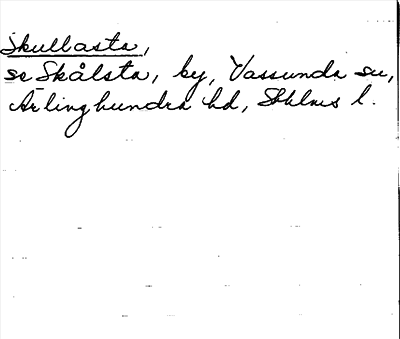 Skullasta,
se Skålsta, by, Vassunda sn,
Ärlinghundra hd, Sthlms l.